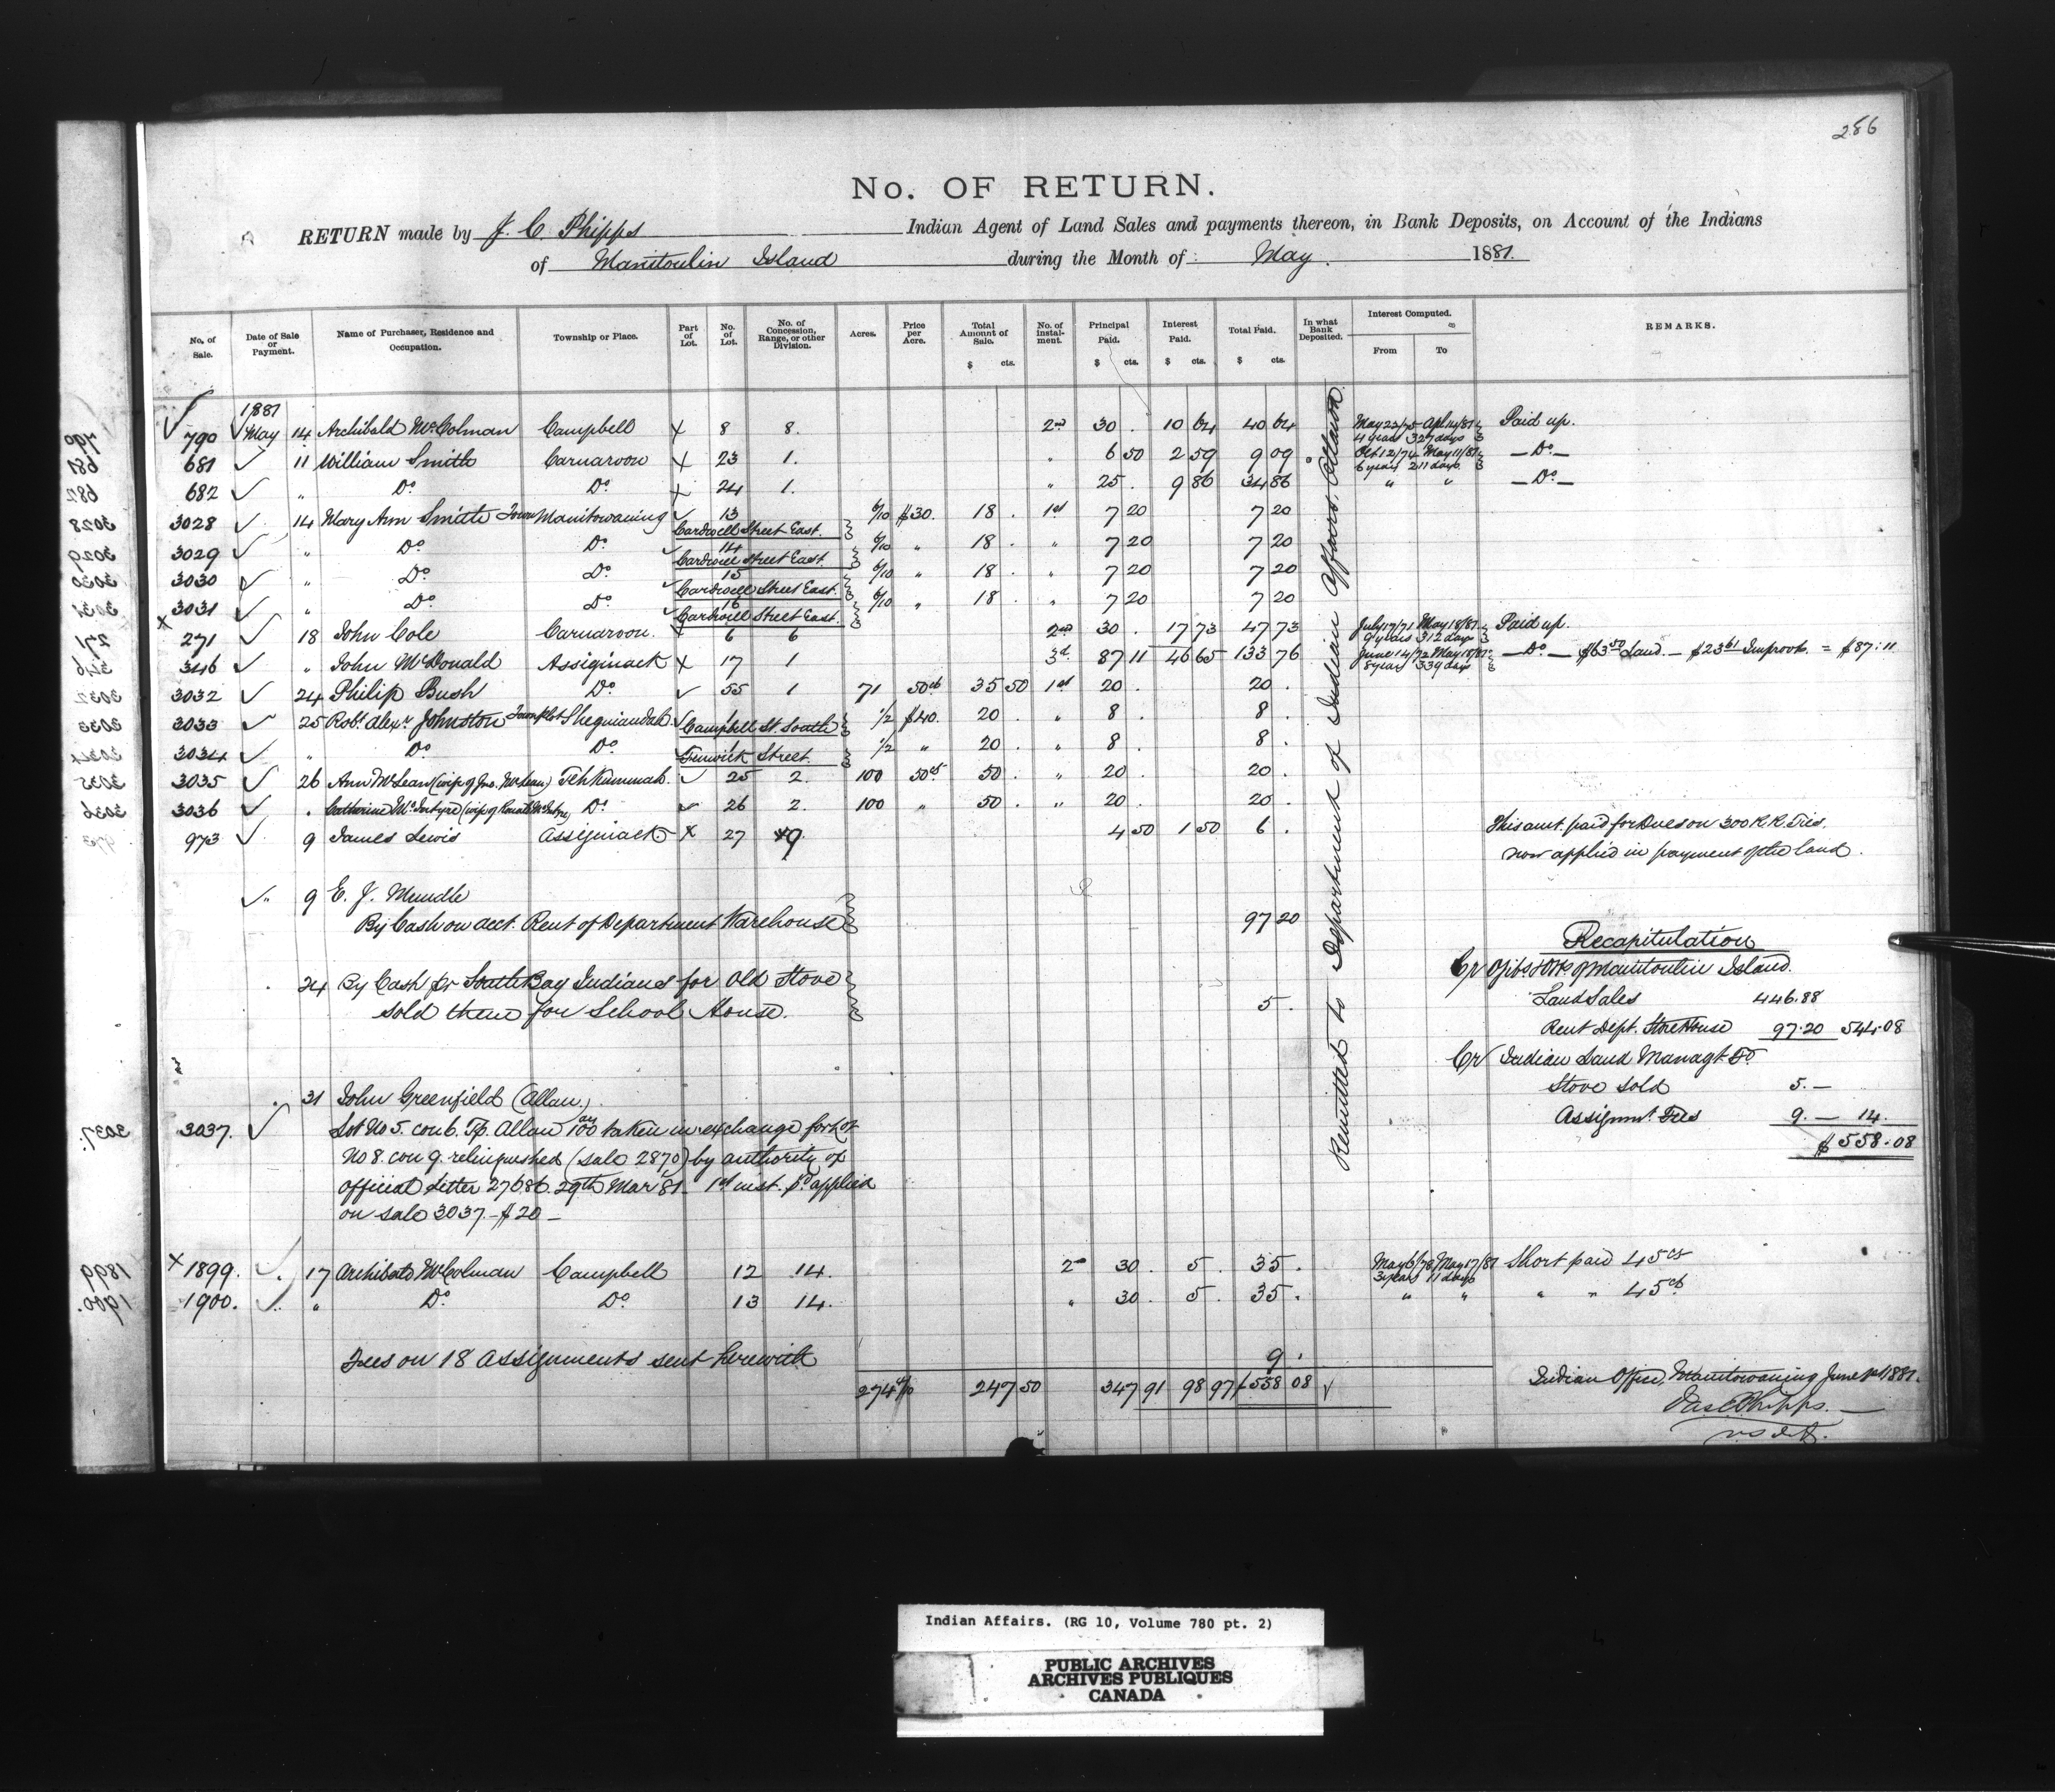 286
No. OF RETURN.
RETURN made by J. C. Phipps Indian Agent of Land Sales and payments thereon, in Bank Deposits, on Account of the Indians
of Manitoulin Island during the Month of May. 1881.
No. of Sale. Date of Sale or Payment. Name of Purchaser, Residence and Occupation. Township or Place. Part of Lot. No. of Lot. No. of Concession, Range, or other Division. Acres. Price per Acre. Total Amount of Sale. $ cts. No. of instalment. Principal Paid. $ cts. Interest Paid. $ cts. Total Paid. $ cts. In what Bank Deposited. Interest Computed. From To REMARKS.
1881
790 May 14 Archibald McColman Campbell X 8 8. 2nd 30 . 10 64 40 64 May 23/75 Apl 14/81 Paid up.
4 years 327 days
681 11 William Smith Carnarvon X 23 1. " 6 50 2 59 9 09 Oct 12/74 May 11/81 — Do —
6 years 211 days
682 " Do Do X 24 1. " 25 . 9 86 34 86 " " — Do —
3028 14 Mary Ann Smith Town Manitowaning 13 6/10 $30. 18 . 1st 7 20 7 20
Cardwell Street East.
3029 " Do Do 14 6/10 " 18 . " 7 20 7 20
Cardwell Street East.
3030 " Do Do 15 6/10 " 18 . " 7 20 7 20
Cardwell Street East.
3031 " Do Do 16 6/10 " 18 . " 7 20 7 20
Cardwell Street East.
x 271 18 John Cole Carnarvon. 6 6 2nd 30 . 17 73 47 73 July 17/71 May 18/81 Paid up.
9 years 312 days
346 " John McDonald Assiginack X 17 1 3d 87 11 46 65 133 76 June 14/72 May 18/81 — Do — $63.50 Land. — $23.61 Improvts. = $87.11
8 years 339 days
3032 24 Philip Bush Do 55 1 71 50cts 35 50 1st 20 . 20 .
3033 25 Robt. Alexr. Johnston Town Plot Sheguiandah 1 1/2 $40. 20 . " 8 . 8 .
Campbell St. South
3034 " Do Do 1 1/2 " 20 . " 8 . 8 .
Fenwick Street.
3035 26 Ann McLean (wife of Jno. McLean) Tehkummah. 25 2. 100 50cts. 50 . " 20 . 20 .
3036 . Catherine McIntyre (wife of Ronald McIntyre) Do 26 2. 100 " 50 . " 20 . 20 .
973 9 James Lewis Assiginack X 27 9 4 50 1 50 6 . This amt. paid for Dues on 300 R.R. Ties.
now applied in payment of the land.
" 9 E. J. Mundle
By Cash on acct. Rent of Department Warehouse 97 20
24 By Cash fr South Bay Indians for old Stove
sold them for School House. 5 .
Remitted to Department of Indian Affairs. Ottawa
Recapitulation
Cr Ojibs & Otts of Manitoulin Island.
Land Sales 446.88
Rent Dept. Storehouse 97.20 544.08
Cr Indian Land Managt. Fd
Stove Sold 5. —
Assignmt. Fees 9. — 14.
$558.08
31 John Greenfield (Allan.)
3037. Lot No 5. con 6. Tp. Allan 100 ac taken in exchange for Lot
No 8. con 9. relinquished (sale 2870) by authority of
official Letter 27686. 29th Mar '81. 1st inst. pd applied
on sale 3037. — $20 —
x 1899. 17 Archibald McColman Campbell 12 14. 2nd 30 . 5 . 35 . May 6/78 May 17/81 Short paid 45cts
3 years 11 days
1900. " Do Do 13 14. " 30 . 5 . 35 . " " " " 45cts
Fees on 18 Assignments sent herewith 9 .
274 4/10 247 50 347 91 98 97 $558 08
Indian Office, Manitowaning June 1st 1881.
Jas C Phipps. —
Indian Affairs. (RG 10, Volume 780 pt. 2)
PUBLIC ARCHIVES
ARCHIVES PUBLIQUES
CANADA